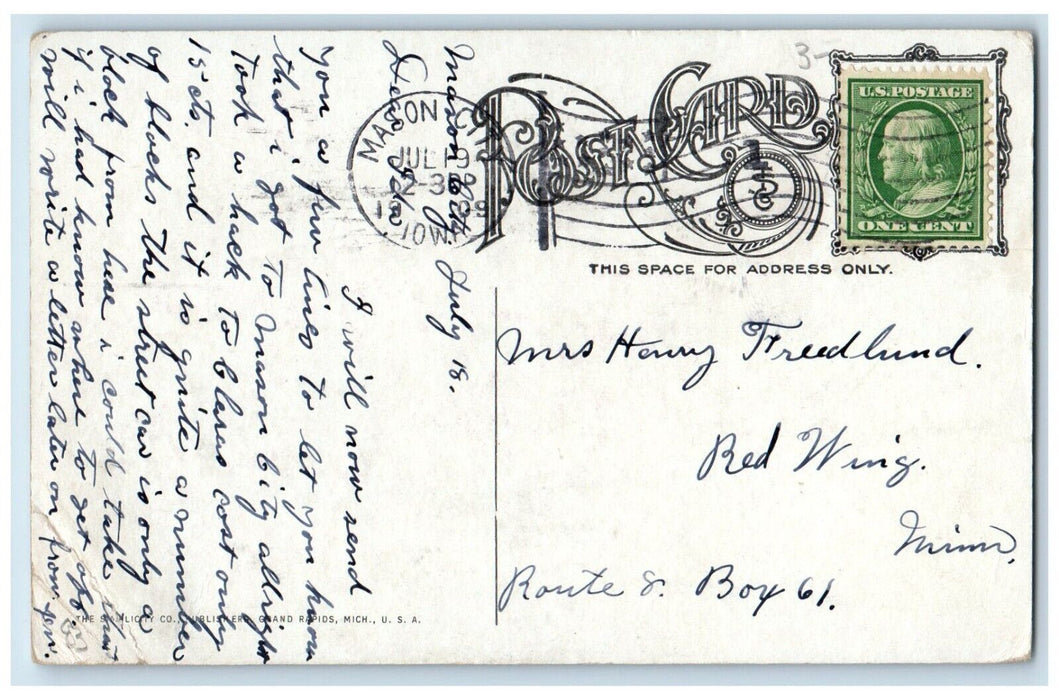 Mason City July 18.
Dear Ida
I will now send
you a few lines to let you know
that i got to Mason City allright
Took a hack to Claras cost only
15 cts. and it is quite a number
of blocks the street car is only a
block from hear i could take that
if i had known where to get off.
will write a letter later on from
3-
POST CARD
MASON CITY
JUL 19
2-30P
1909
IOWA
1
U.S. POSTAGE
ONE CENT
THIS SPACE FOR ADDRESS ONLY.
Mrs Henry Freedlund.
Red Wing.
Minn,
Route 8. Box 61.
THE SIMPLICITY CO., PUBLISHERS, GRAND RAPIDS, MICH., U. S. A.